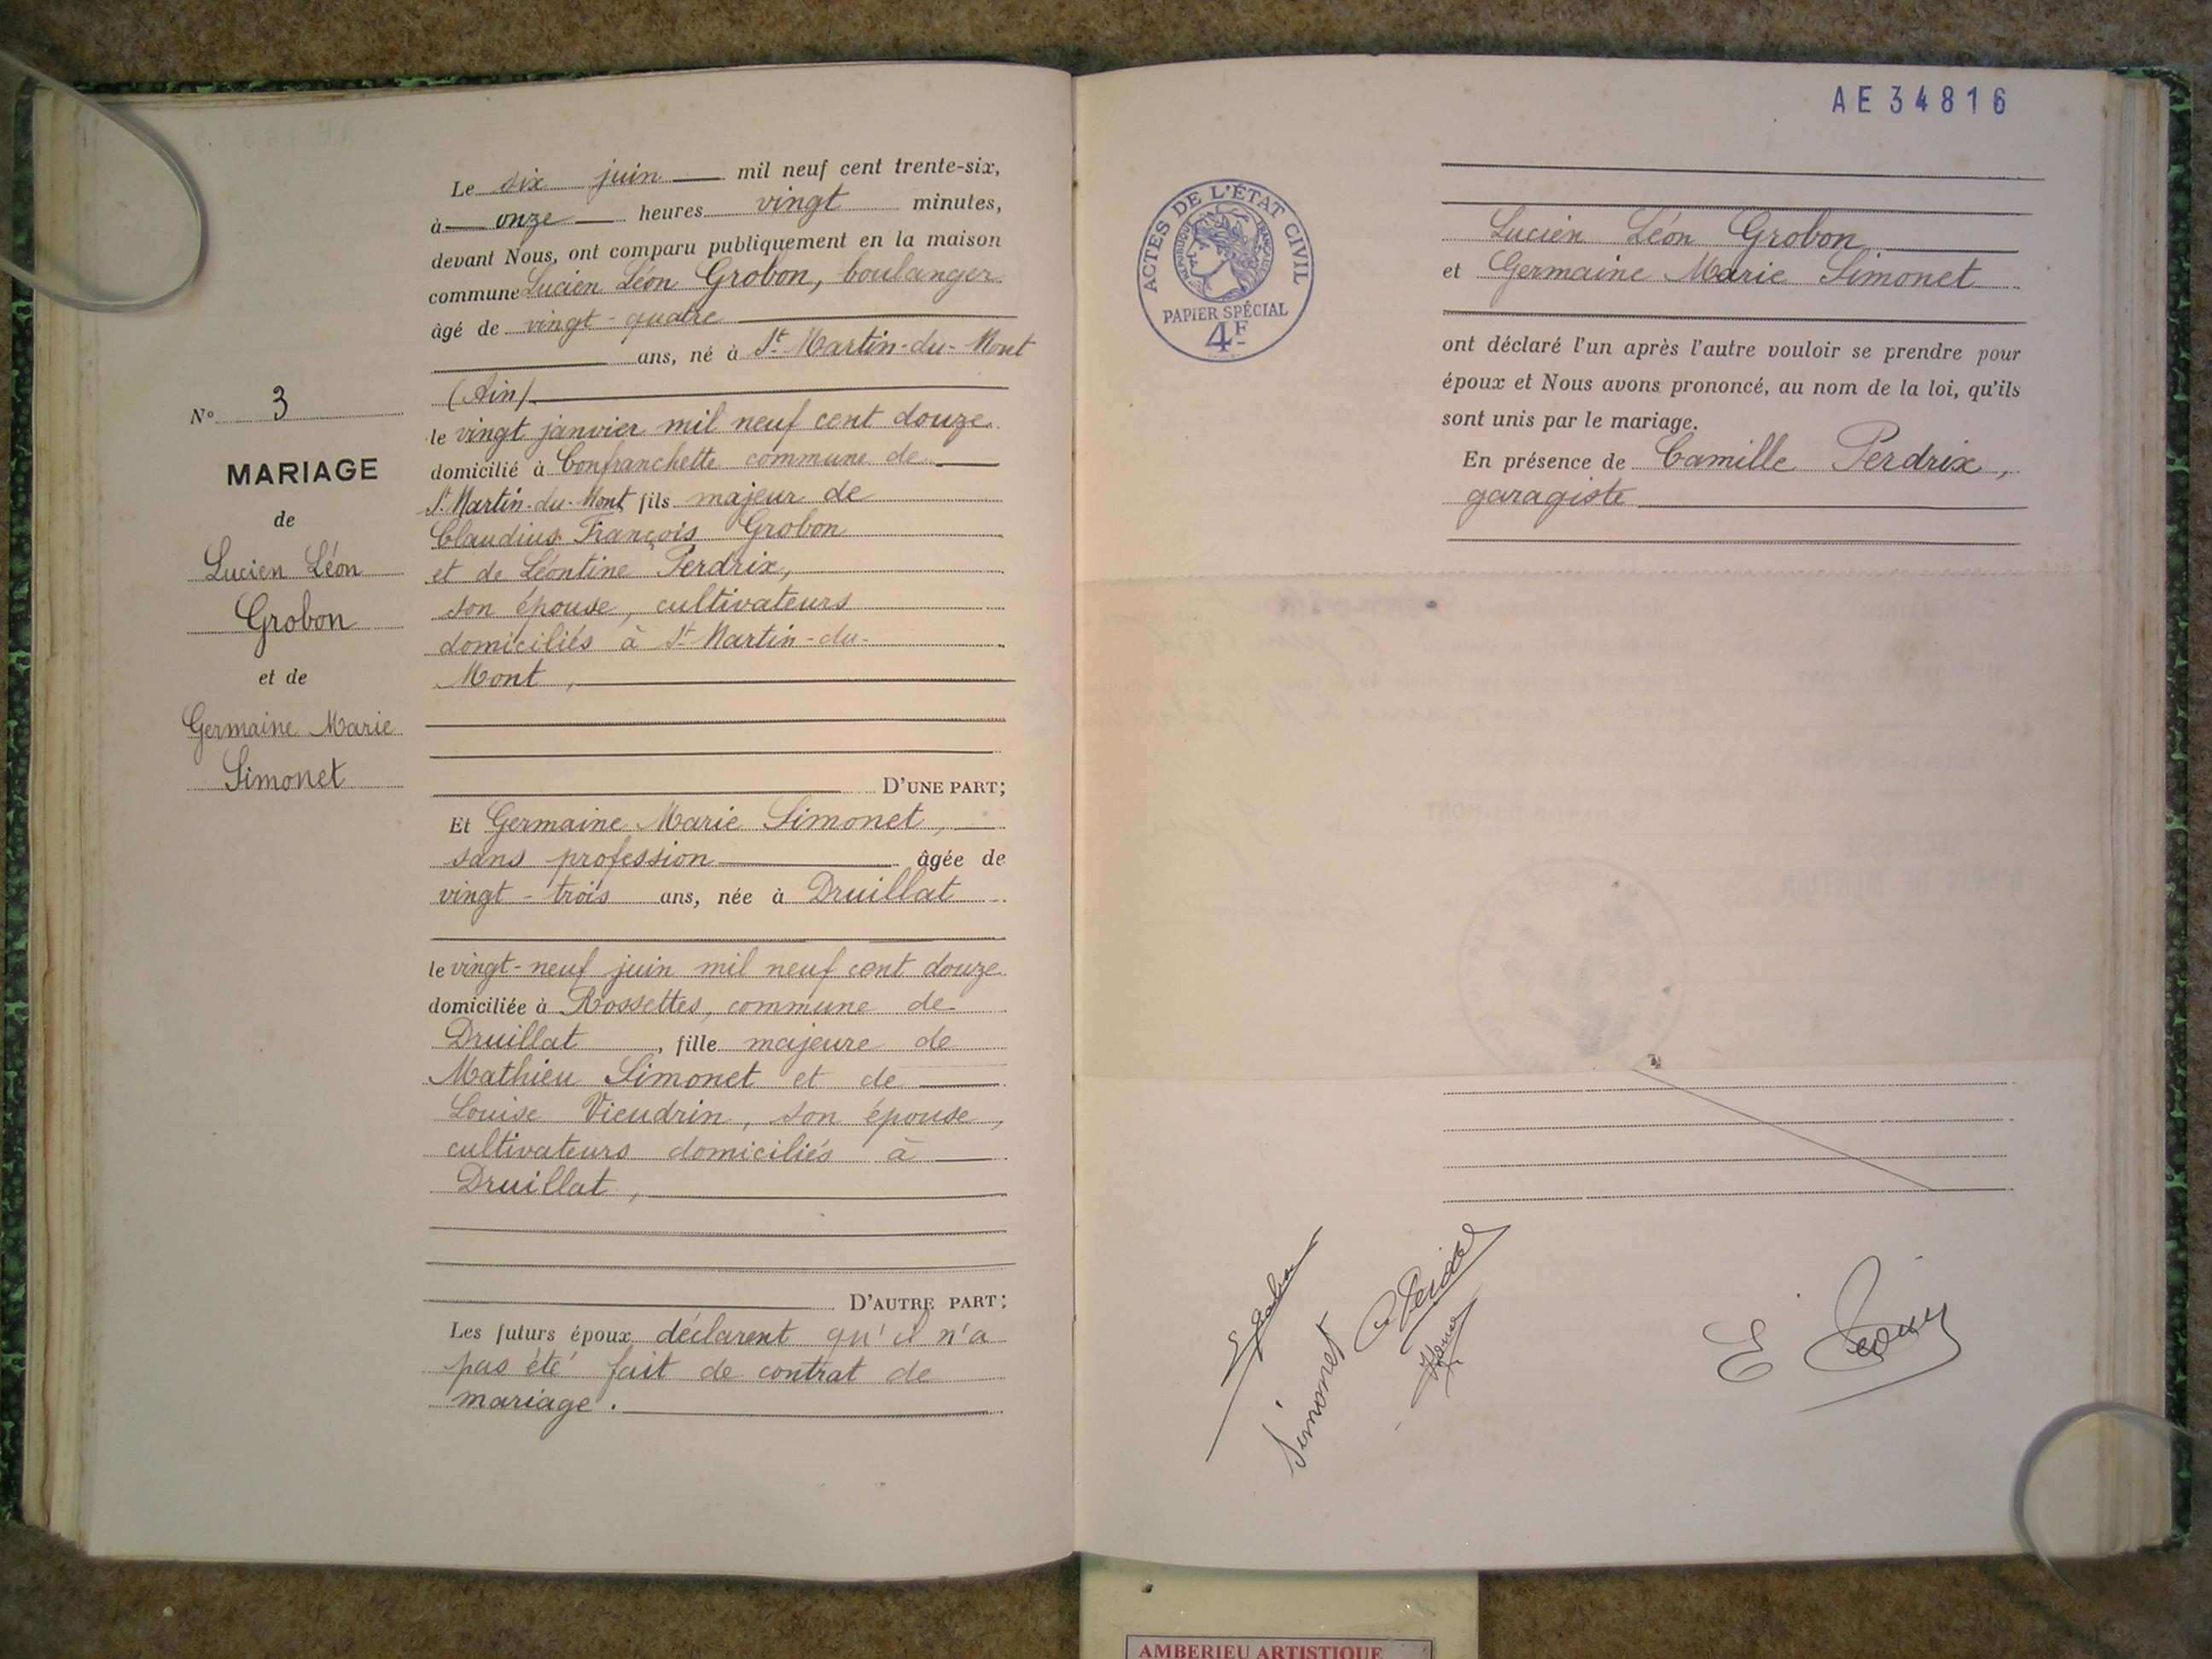 N° 3
MARIAGE
de
Lucien Léon
Grobon
et de
Germaine Marie
Simonet
Le six juin mil neuf cent trente-six,
à onze heures vingt minutes,
devant Nous, ont comparu publiquement en la maison
commune Lucien Léon Grobon, boulanger
âgé de vingt-quatre
ans, né à St Martin-du-Mont
(Ain)
le vingt janvier mil neuf cent douze
domicilié à Confranchette commune de
St Martin-du-Mont fils majeur de
Claudius François Grobon
et de Léontine Perdrix,
son épouse, cultivateurs
domiciliés à St Martin-du-
Mont,
D'UNE PART;
Et Germaine Marie Simonet,
sans profession âgée de
vingt-trois ans, née à Druillat
le vingt-neuf juin mil neuf cent douze
domiciliée à Rossettes, commune de
Druillat, fille majeure de
Mathieu Simonet et de
Louise Vieudrin, son épouse,
cultivateurs domiciliés à
Druillat,
D'AUTRE PART;
Les futurs époux déclarent qu'il n'a
pas été fait de contrat de
mariage.
AE34816
ACTES DE L'ÉTAT CIVIL
RÉPUBLIQUE FRANÇAISE
PAPIER SPÉCIAL
4F
Lucien Léon Grobon
et Germaine Marie Simonet
ont déclaré l'un après l'autre vouloir se prendre pour
époux et Nous avons prononcé, au nom de la loi, qu'ils
sont unis par le mariage.
En présence de Camille Perdrix,
garagiste
Simonet
AMBERIEU ARTISTIQUE